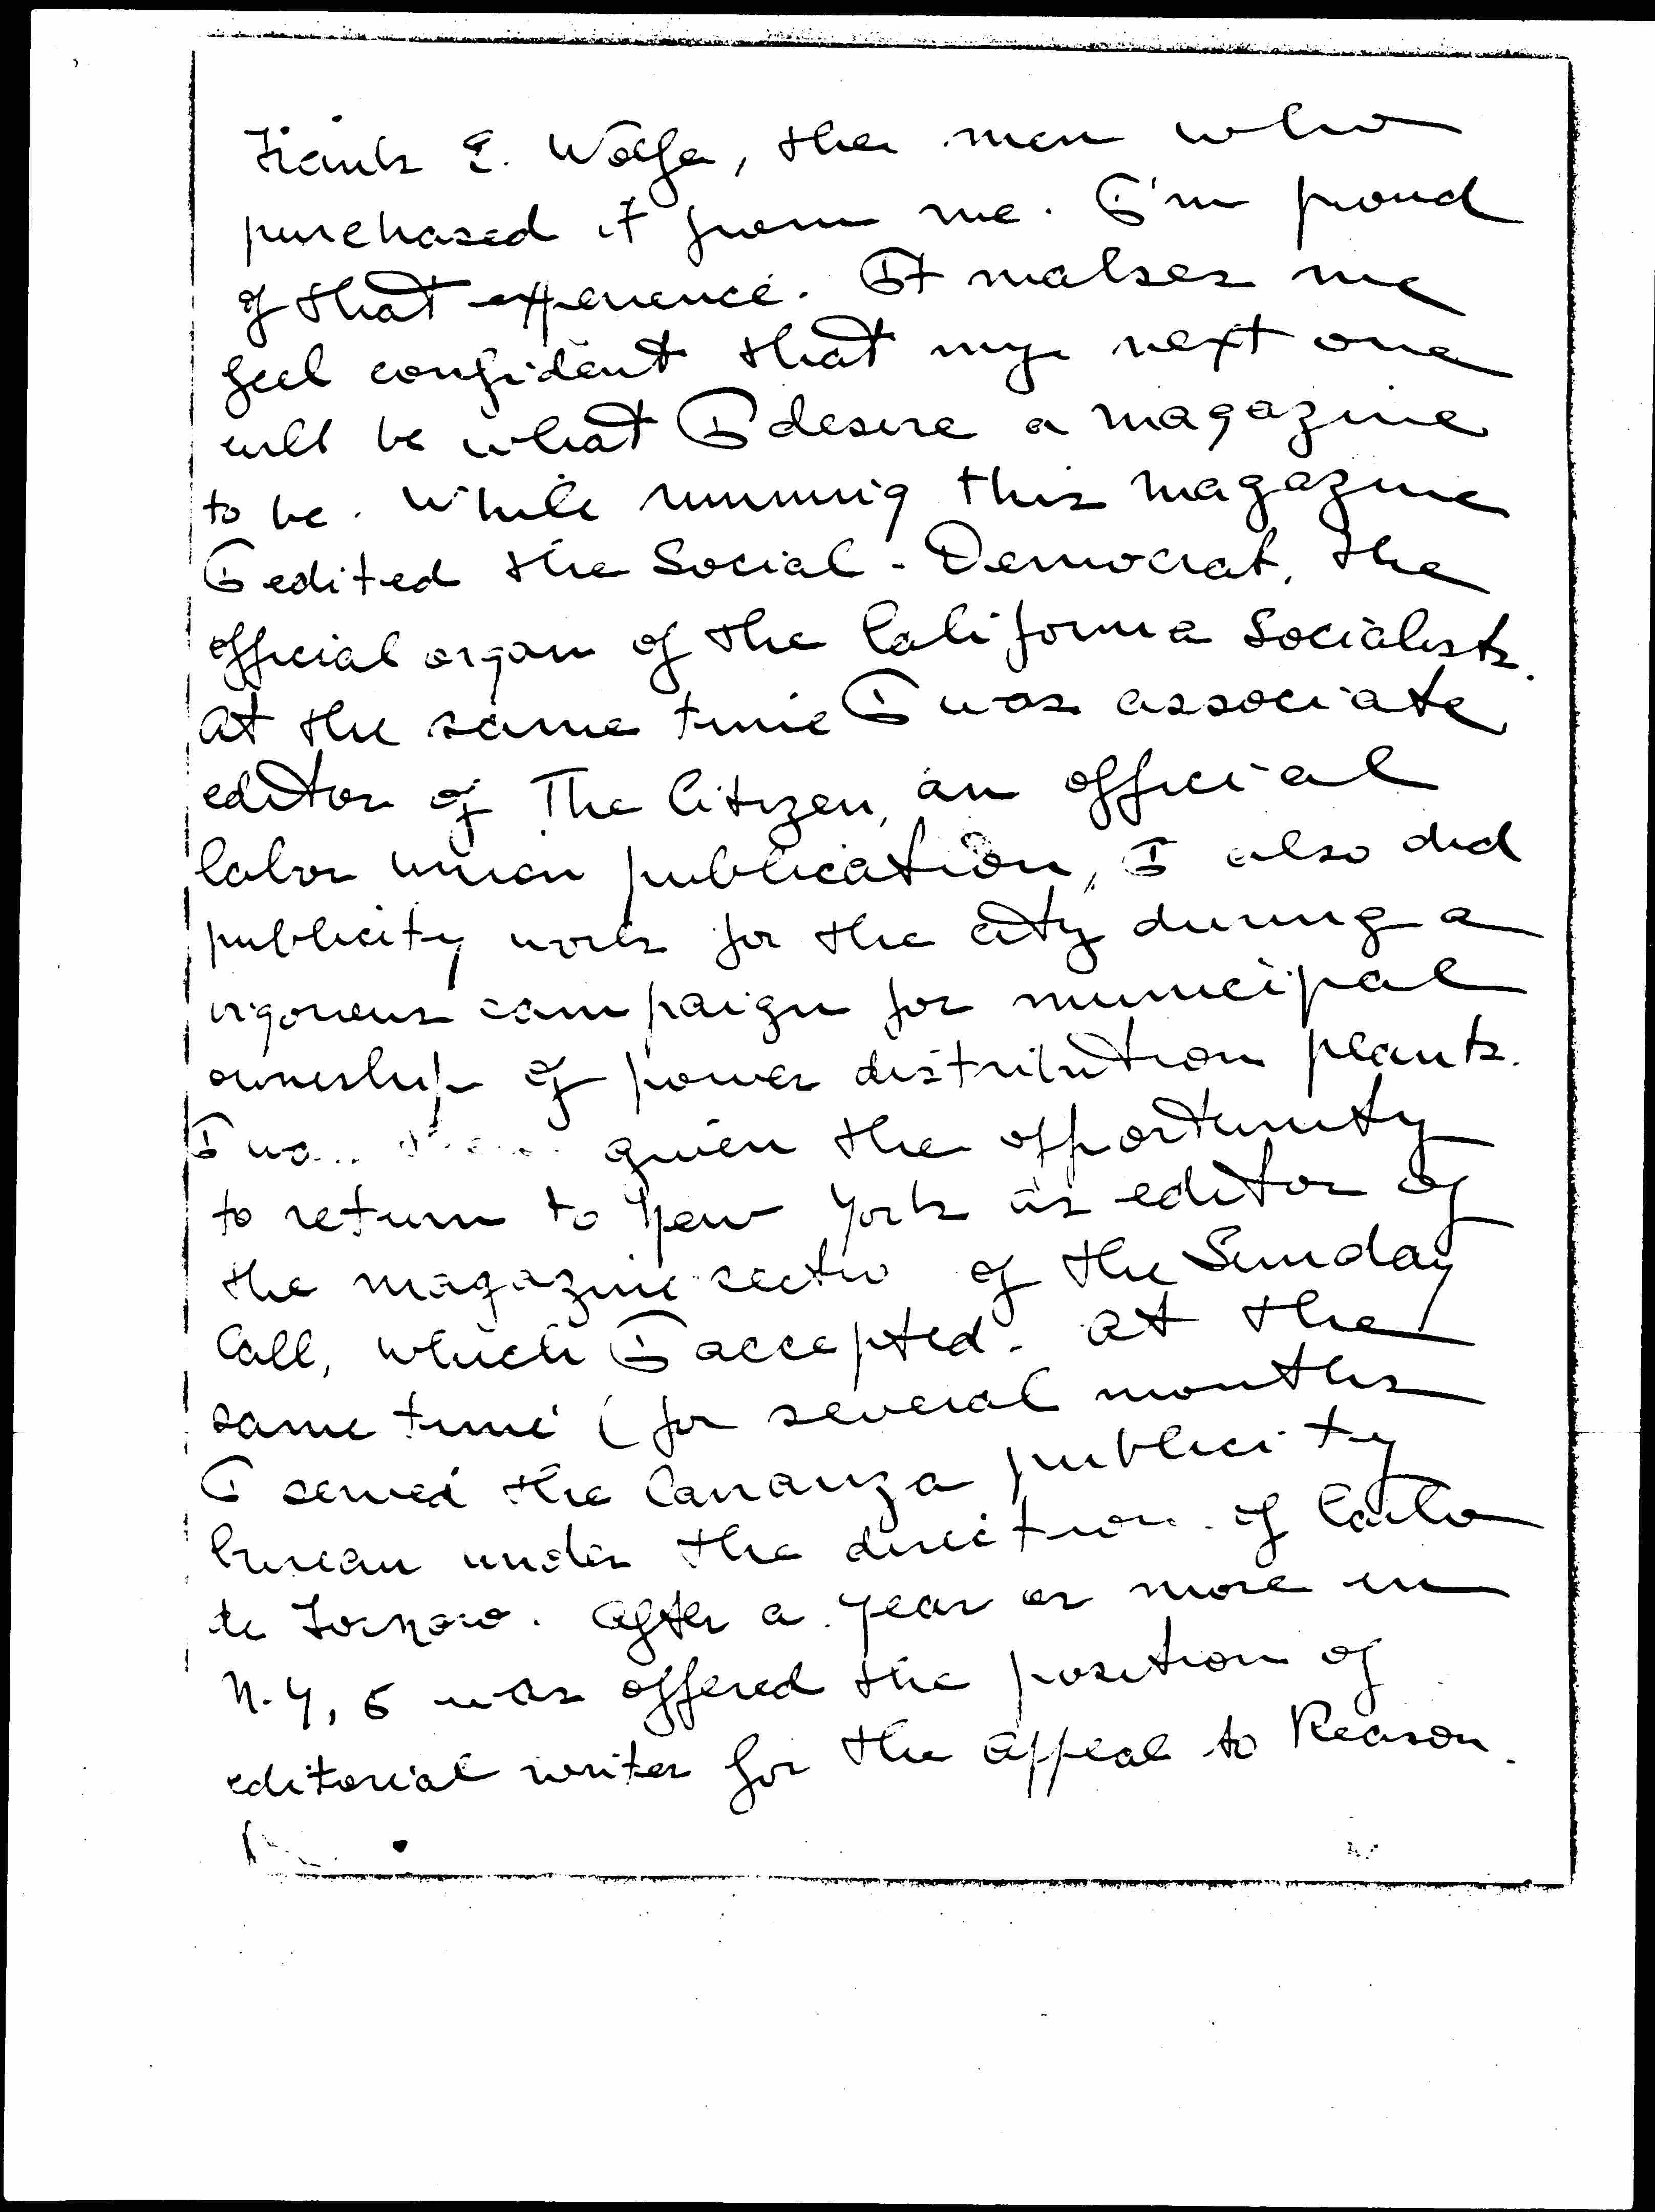 Frank E. Wolfe, the man who
purchased it from me. I'm proud
of that experience. It makes me
feel confident that my next one
will be what I desire a magazine
to be. While running this magazine
I edited the Social-Democrat, the
official organ of the California Socialists.
At the same time I was associate
editor of The Citizen, an official
labor union publication, I also did
publicity work for the city during a
vigorous campaign for municipal
ownership of power distribution plants.
I given the opportunity
to return to New York as editor of
the magazine sectio of the Sunday
Call, which I accepted. At the
same time (for several months
I served the Carranza publicity
bureau under the direction of Carlo
de Fornaro. After a year or more in
N.Y, I was offered the position of
editorial writer for the Appeal to Reason.